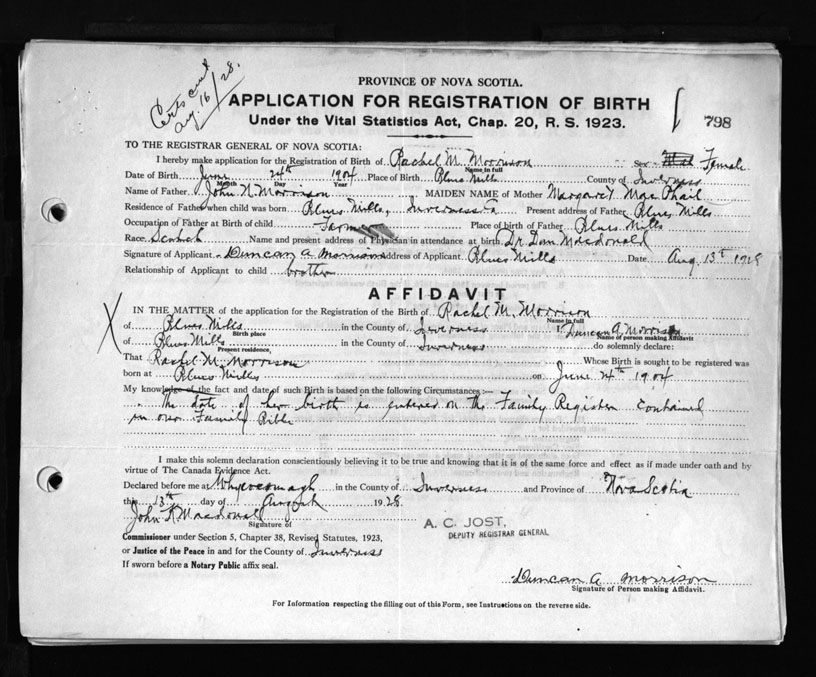 Certs cut
Aug. 16/28.
PROVINCE OF NOVA SCOTIA.
APPLICATION FOR REGISTRATION OF BIRTH
Under the Vital Statistics Act, Chap. 20, R. S. 1923.
798
TO THE REGISTRAR GENERAL OF NOVA SCOTIA:
I hereby make application for the Registration of Birth of Rachel M. Morrison Sex Female
Name in full
Date of Birth June 24th 1904 Place of Birth Blues Mills County of Inverness
Month Day Year
Name of Father John N. Morrison MAIDEN NAME of Mother Margaret MacPhail
Residence of Father when child was born Blues Mills, Inverness Co Present address of Father Blues Mills
Occupation of Father at Birth of child Farmer Place of birth of Father Blues Mills
Race Scotch Name and present address of Physician in attendance at birth Dr Dan Macdonald
Signature of Applicant Duncan A Morrison Address of Applicant Blues Mills Date Aug. 13th 1928
Relationship of Applicant to child brother
AFFIDAVIT
IN THE MATTER of the application for the Registration of the Birth of Rachel M. Morrison
Name in full
of Blues Mills in the County of Inverness I Duncan A. Morrison
Birth place Name of person making Affidavit
of Blues Mills in the County of Inverness do solemnly declare:
Present residence,
That Rachel M. Morrison Whose Birth is sought to be registered was
born at Blues Mills on June 24th 1904
My knowledge of the fact and date of such Birth is based on the following Circumstances :—
The date of her birth is entered on the Family Register contained
in our Family Bible
I make this solemn declaration conscientiously believing it to be true and knowing that it is of the same force and effect as if made under oath and by
virtue of The Canada Evidence Act.
Declared before me at Whycocomagh in the County of Inverness and Province of Nova Scotia
this 13th day of August 1928
John A Macdonald
Signature of
A. C. JOST,
DEPUTY REGISTRAR GENERAL
Commissioner under Section 5, Chapter 38, Revised Statutes, 1923,
or Justice of the Peace in and for the County of Inverness
If sworn before a Notary Public affix seal.
Duncan A Morrison
Signature of Person making Affidavit.
For Information respecting the filling out of this Form, see Instructions on the reverse side.